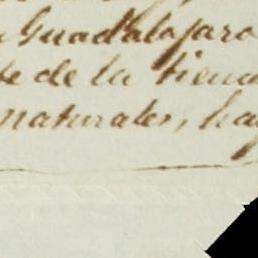 Guadalajara
te de la tiend
naturales, hay